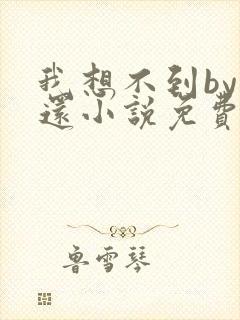 我想不到by
還小說免費
魯雪琴